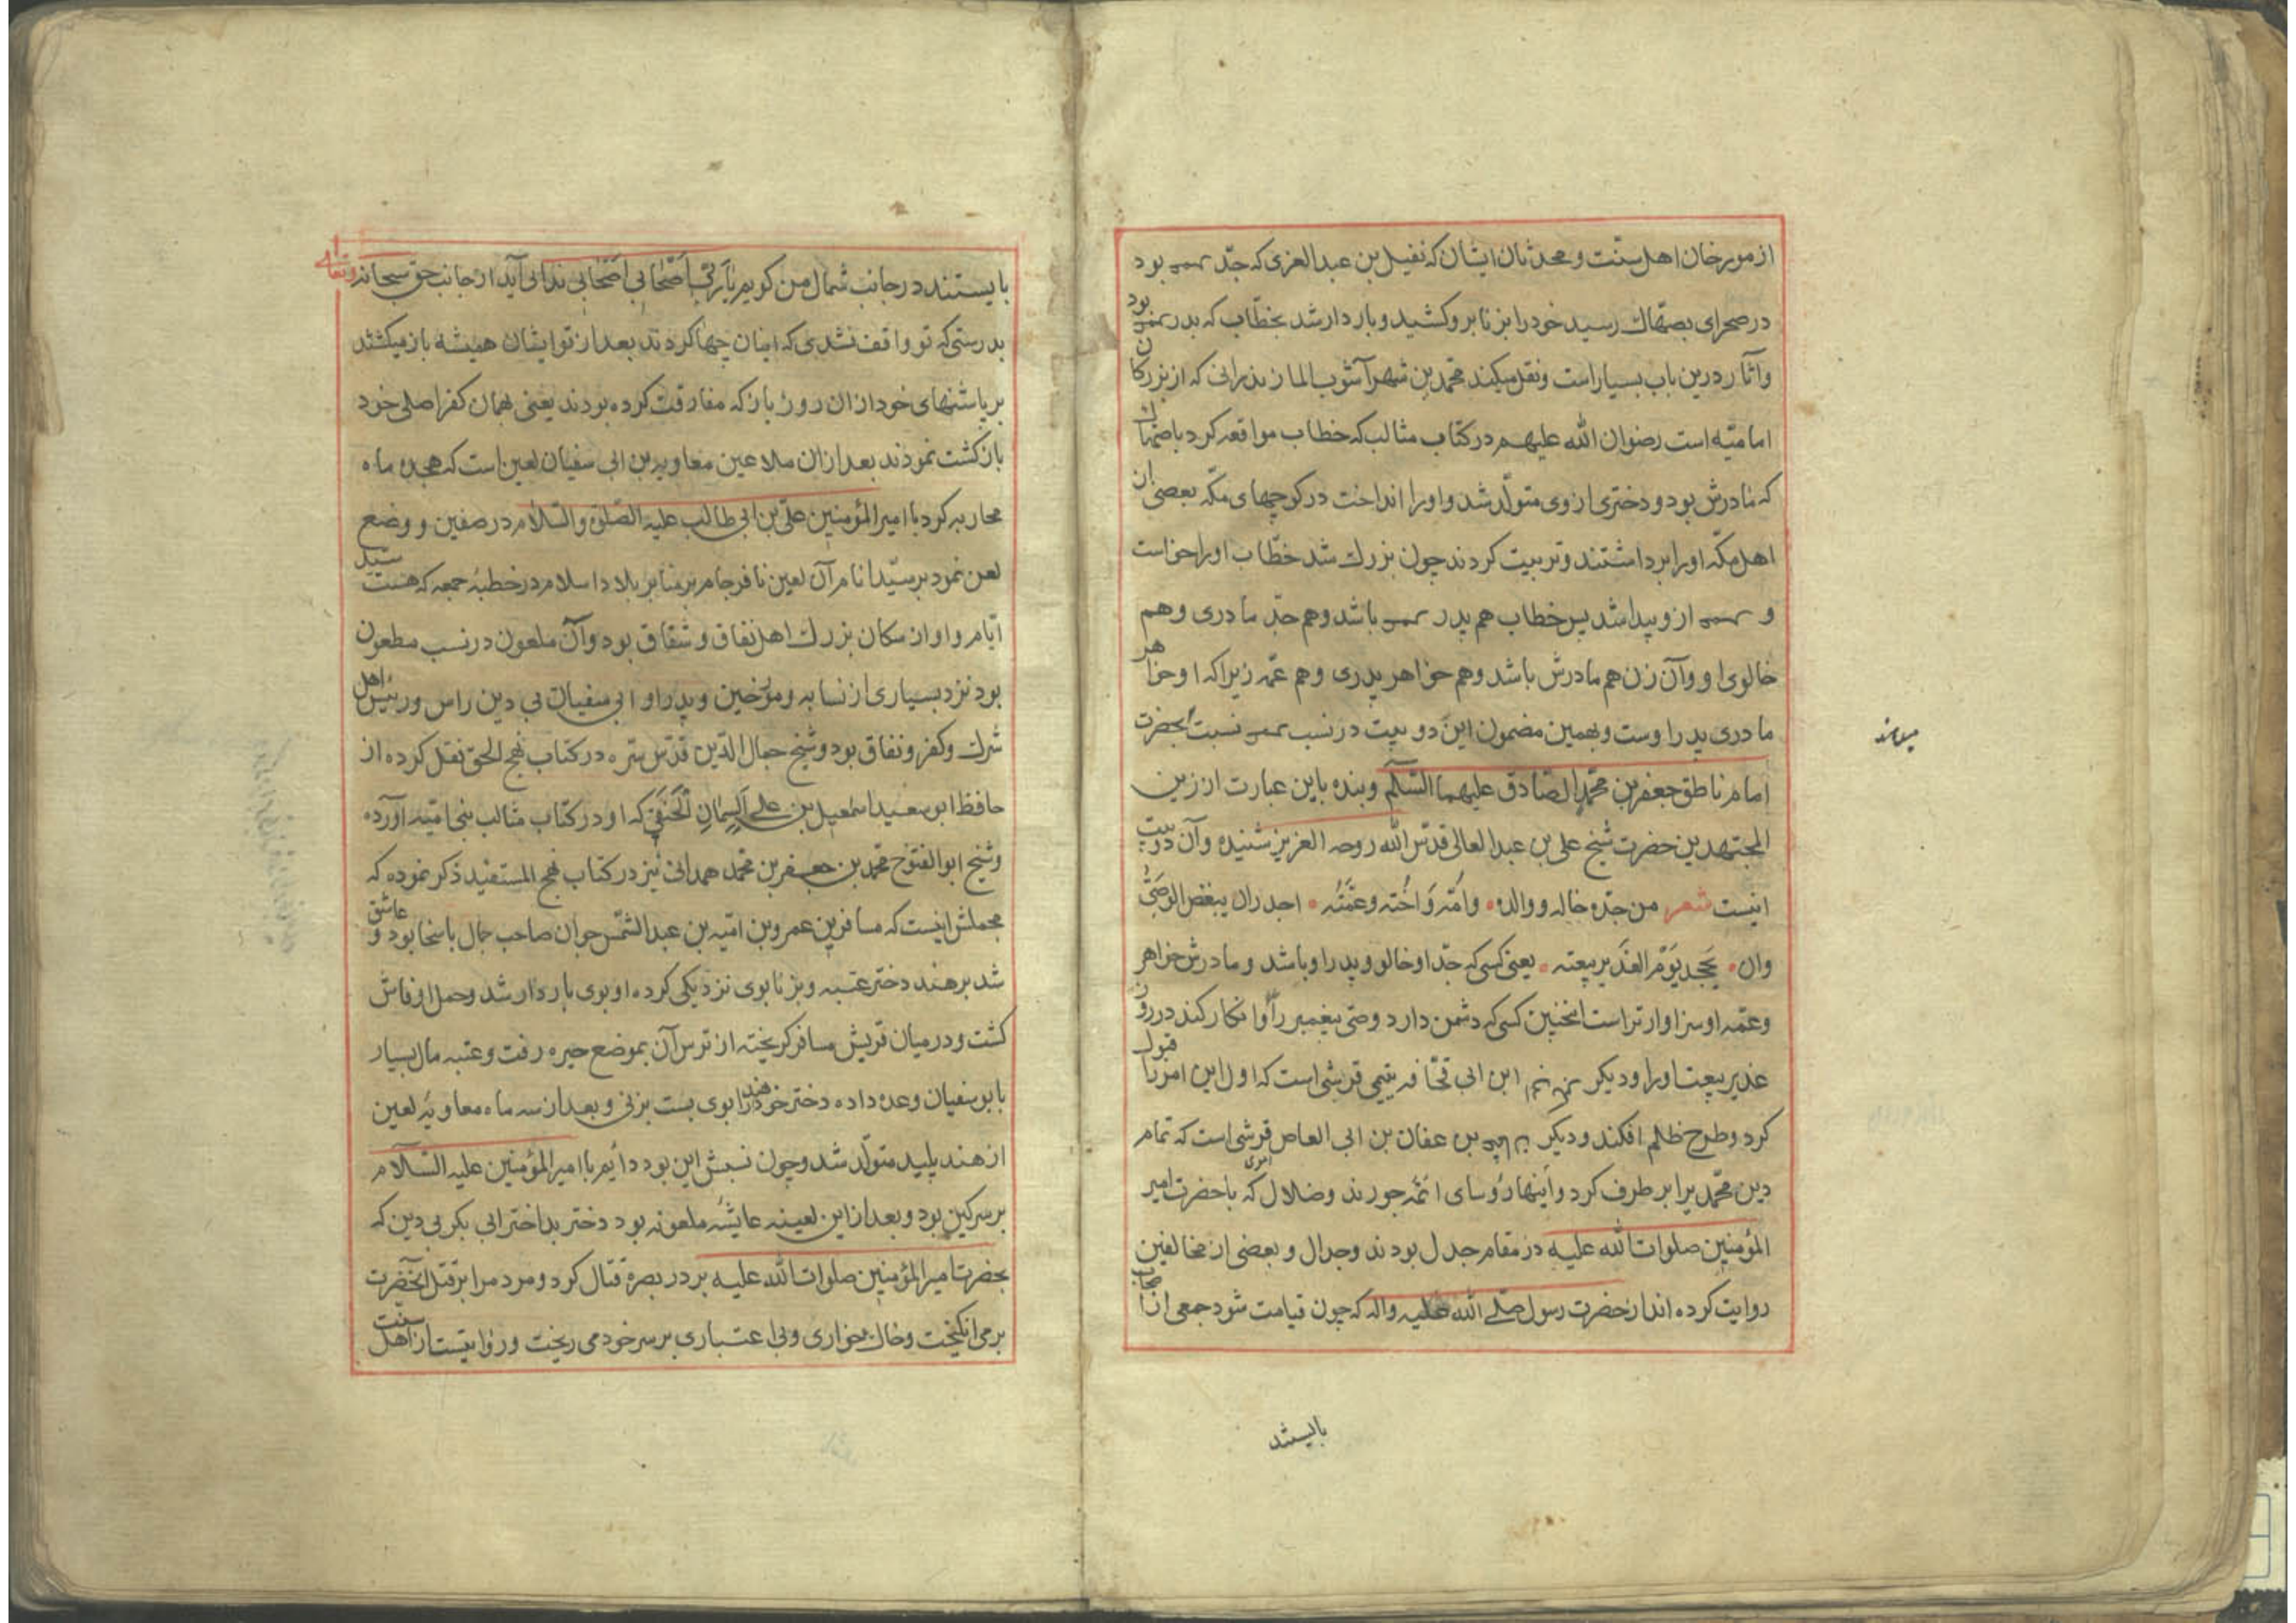 از مورخان اهل سنّت و محدثان ایشان که نفیل بن عبد العزی که جدّ بود
در صحرای بصهاك رسید خود را بزنا برو کشید و باردار شد بخطّاب که پدر بود
و آثار درین باب بسیار است و نقل میکند محمّد بن شهرآشوب المازندرانی که از بزرکان
امامیّه است رضوان الله علیهم در کتاب مثالب که خطاب مواقعه کرد با صهاك
که مادرش بود و دختری از وی متولّد شد و او را انداخت در کوچهای مکّه بعضی از
اهل مکّه او را برداشتند و تربیت کردند چون بزرك شد خطّاب او را خواست
و از و پیدا شد پس خطاب هم پدر باشد و هم جدّ مادری و هم
خالوی او و آن زن هم مادرش باشد و هم خواهر پدری و هم عمّه زیرا که او خواهر
مادری پدر اوست و بهمین مضمون این دو بیت در نسب نسبت بحضرت
امام ناطق جعفر بن محمّد الصّادق علیهما السّلم و بنده باین عبارت از زین
المجتهدین حضرت شیخ علی بن عبد العالی قدّس الله روحه العزیز شنیده و آن دو بیت
اینست شعر من جدّه خاله و والده • وامّه وَاُخته وعمّته • اجدران یبغض الوصیّ
وان • یجحد یَوْم الغَدیر بیعته • یعنی کسی که جدّ او خالو و پدر او باشد و مادرش خواهر
و عمّه او سزاوارتر است انچنین کسی که دشمن دارد وصیّ پیغمبر را و انکار کند در روز
غدیر بیعت او را و دیکر ابن ابی قحّافه تیمی قرشی است که اول این امر را قبول
کرد و طرح ظلم افکند و دیکر بن عفان بن ابی العاص اموی قرشی است که تمام
دین محمّد یرا بر طرف کرد و اینها رؤسای ائمّه جورند و ضلال که با حضرت امیر
المؤمنین صلوات الله علیه در مقام جدل بودند و جدال و بعضی از مخالفین
روایت کرده اند از حضرت رسول صلّی الله علیه واله که چون قیامت شود جمعی از اصحاب
بایستند
بایستند در جانب شمال من کویم یَارَبّ اَصْحَابی اَصْحَابی ندائی آید از جانب حقّ سبحانه وتعالی
بدرستی که تو واقف نشدی که اینان چها کردند بعد از تو ایشان همیشه باز میکشتند
بر پاشنهای خود از ان روز باز که مفارقت کرده بودند یعنی بهمان کفر اصلی خود
بازکشت نمودند بعد ازان ملاعین معاویه بن ابی سفیان لعین است که هجده ماه
محاربه کرد با امیر المؤمنین علیّ بن ابی طالب علیه الصّلوة والسّلام در صفین و وضع
لعن نمود بر سیّد انام آن لعین نافرجام بر منابر بلاد اسلام در خطبهٔ جمعه که هست سیّد
ایّام و او از سکان بزرك اهل نفاق و شقاق بود و آن ملعون در نسب مطعون
بود نزد بسیاری از نسابه و مورّخین و پدر او ابی سفیان بی دین راس و رئیس اهل
شرك و کفر و نفاق بود و شیخ جمال الدّین قدّس سرّه در کتاب نهج الحق نقل کرده از
حافظ ابو سعید اسمعیل بن علی السمان الحَنَفی که او در کتاب مثالب بنی امیّه آورده
و شیخ ابو الفتوح محمّد بن جعفر بن محمّد همدانی نیز در کتاب نهج المستفید ذکر نموده که
مجملش اینست که مسافر بن عمرو بن امیّه بن عبد الشّمس جوان صاحب جمال با سخا بود و عاشق
شد بر هند دختر عتبه و بزنا بوی نزدیکی کرده او بوی باردار شد و حمل او فاش
کشت و در میان قریش مسافر کریخته از ترس آن بموضع حیره رفت و عتبه مال بسیار
بابو سفیان وعده داده دختر خود هند را بوی بست بزنی و بعد از سه ماه معاویهٔ لعین
از هند پلید متولّد شد و چون نسبش این بود دائم با امیر المؤمنین علیه السّلام
بر سر کین بود و بعد از این لعینه عایشه ملعونه بود دختر بد اختر ابی بکر بی دین که
بحضرت امیر المؤمنین صلوات الله علیه بر در بصره قتال کرد و مردم را بر قتل آنحضرت
بر می انکیخت و خاك بخواری و بی اعتباری بر سر خود می ریخت و روایتست از اهل سنت